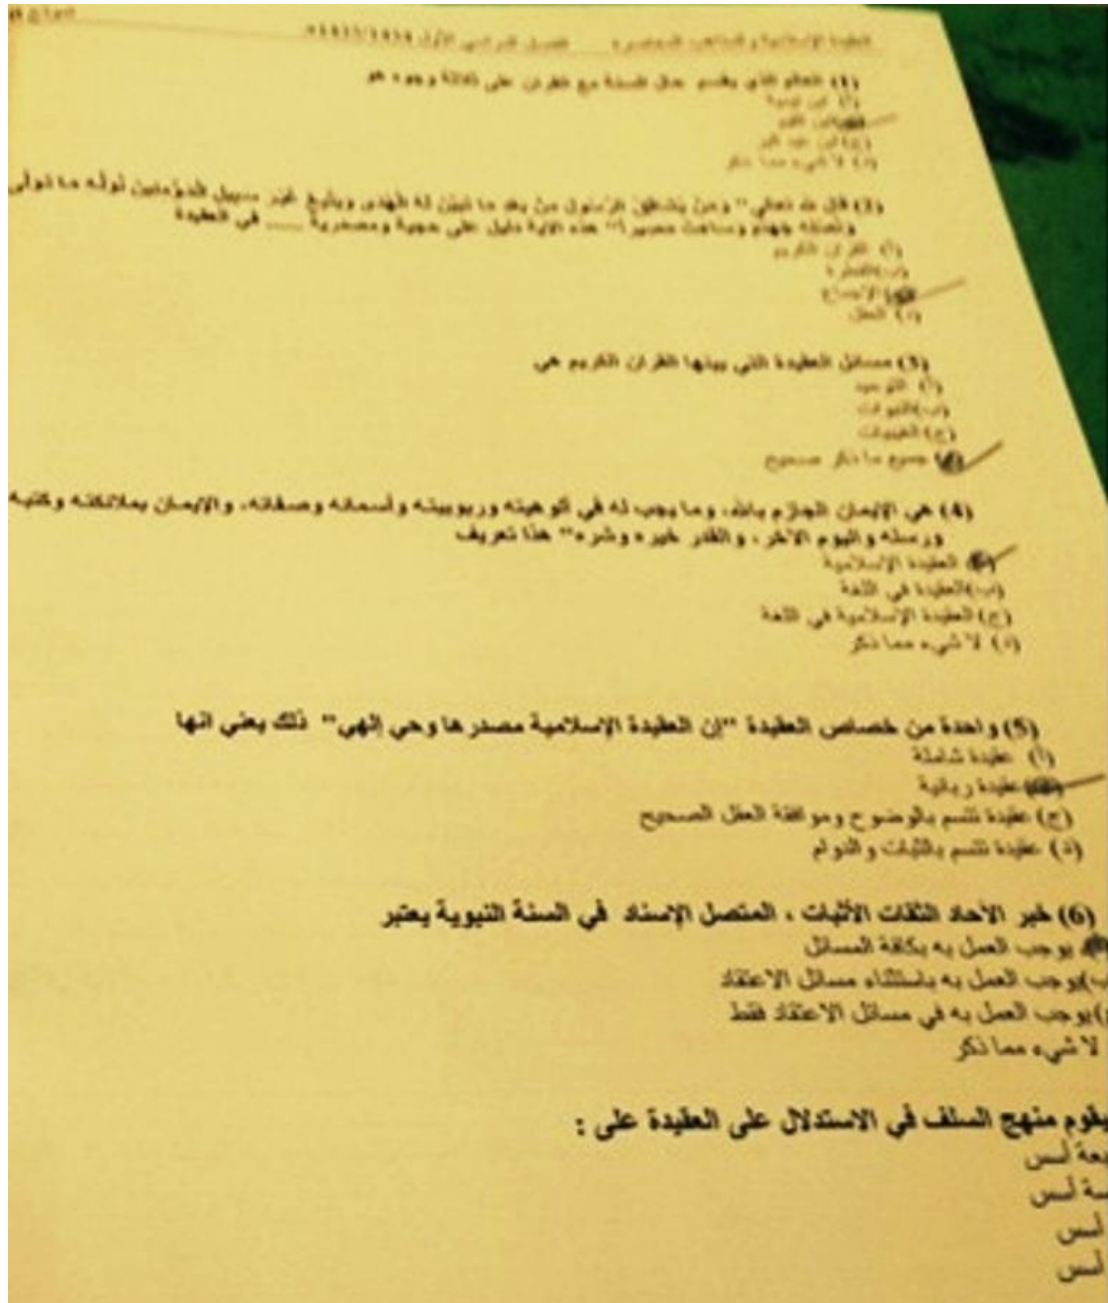 العقيدة الإسلامية والمذاهب المعاصرة الفصل الدراسي الأول
(1) العالم الذي يقسم حال السنة مع القرآن على ثلاثة وجوه هو
(أ) ابن تيمية
ابن القيم
(ج) ابن عبد البر
(د) لا شيء مما ذكر
(2) قال الله تعالى " ومن يشاقق الرسول من بعد ما تبين له الهدى ويتبع غير سبيل المؤمنين نوله ما تولى
ونصله جهنم وساءت مصيرا" هذه الآية دليل على حجية ومصدرية ...... في العقيدة
(أ) القرآن الكريم
(ب)الفطرة
الإجماع
(د) العقل
(3) مسائل العقيدة التي بينها القرآن الكريم هي
(أ) التوحيد
(ب)النبوات
(ج) الغيبيات
جميع ما ذكر صحيح
(4) هي الإيمان الجازم بالله، وما يجب له في ألوهيته وربوبيته وأسمائه وصفاته، والإيمان بملائكته وكتبه
ورسله واليوم الآخر، والقدر خيره وشره" هذا تعريف
العقيدة الإسلامية
(ب)العقيدة في اللغة
(ج) العقيدة الإسلامية في اللغة
(د) لا شيء مما ذكر
(5) واحدة من خصائص العقيدة "إن العقيدة الإسلامية مصدرها وحي إلهي" ذلك يعني انها
(أ) عقيدة شاملة
عقيدة ربانية
(ج) عقيدة تتسم بالوضوح وموافقة العقل الصحيح
(د) عقيدة تتسم بالثبات والدوام
(6) خبر الآحاد الثقات الأثبات ، المتصل الإسناد في السنة النبوية يعتبر
يوجب العمل به بكافة المسائل
ب)يوجب العمل به باستثناء مسائل الاعتقاد
)يوجب العمل به في مسائل الاعتقاد فقط
لا شيء مما ذكر
يقوم منهج السلف في الاستدلال على العقيدة على :
بعة أسس
سة أسس
أسس
أسس